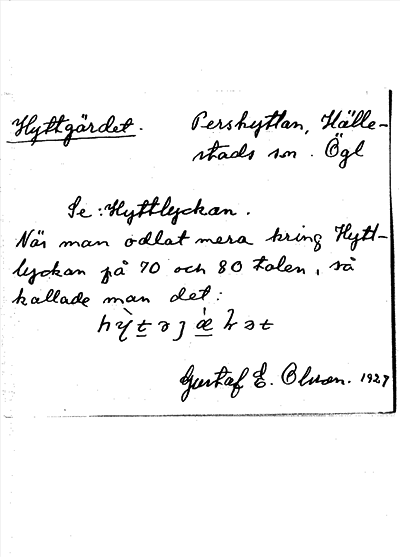 Hyttgärdet. Pershyttan, Hälle-
stads sn. Ögl
Se: Hyttlyckan.
När man odlat mera kring Hytt-
lyckan på 70 och 80 talen, så
kallade man det:
Gustaf E. Olsson. 1927